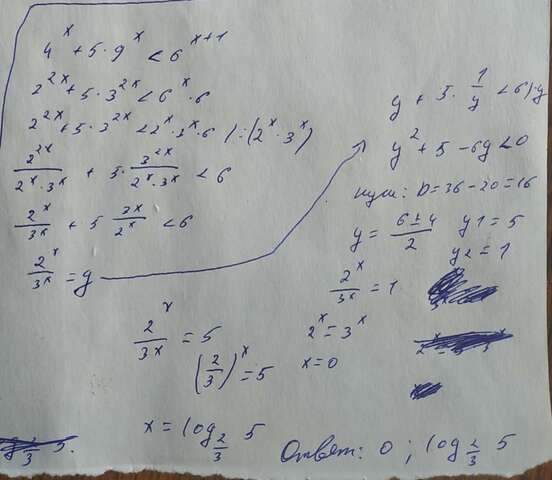 4^x + 5·9^x < 6^{x+1}
2^{2x} + 5·3^{2x} < 6^x·6
2^{2x} + 5·3^{2x} < 2^x·3^x·6 |:(2^x·3^x)
2^{2x}/(2^x·3^x) + 5·3^{2x}/(2^x·3^x) < 6
2^x/3^x + 5 3^x/2^x < 6
2^x/3^x = y
y + 5·1/y < 6 |·y
y^2 + 5 - 6y < 0
нули: D = 36 - 20 = 16
y = (6 ± 4)/2 y1 = 5
y2 = 1
2^x/3^x = 1
2^x = 3^x
x = 0
2^x/3^x = 5
(2/3)^x = 5
x = log_{2/3} 5
Ответ: 0 ; log_{2/3} 5